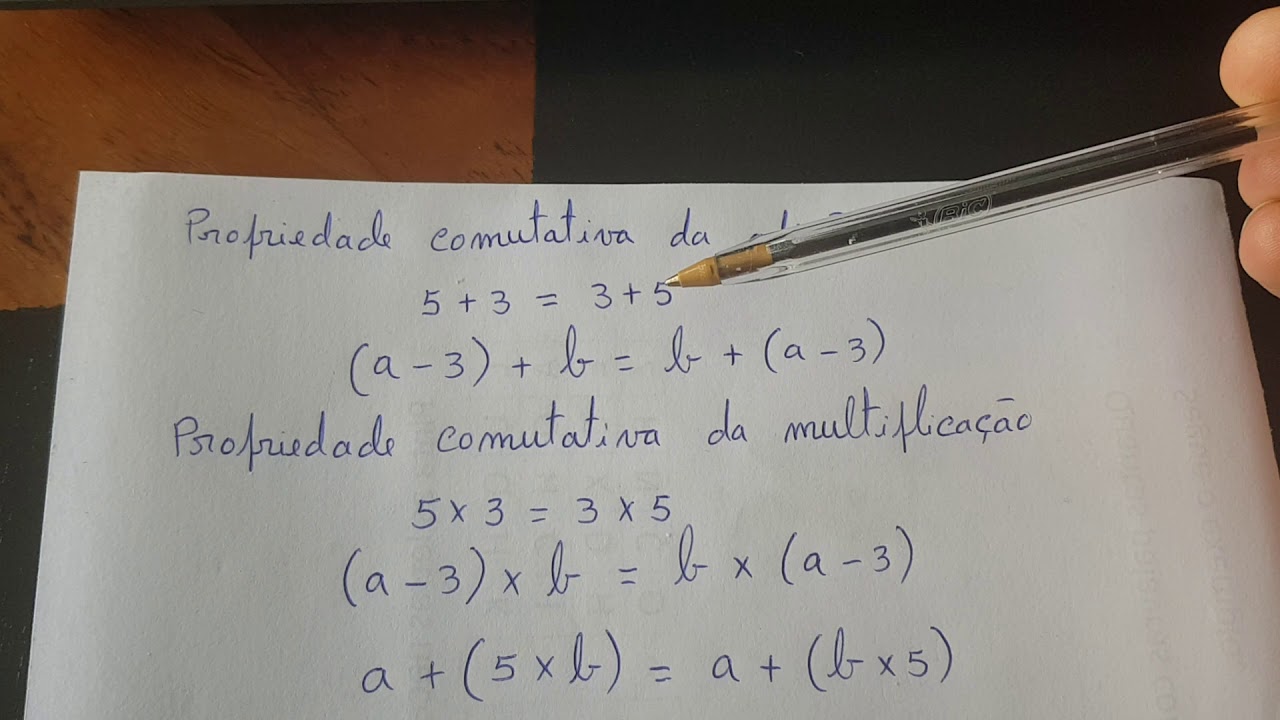 Propriedade comutativa da
5 + 3 = 3 + 5
(a - 3) + b = b + (a - 3)
Propriedade comutativa da multiplicação
5 x 3 = 3 x 5
(a - 3) x b = b x (a - 3)
a + (5 x b) = a + (b x 5)
BIC